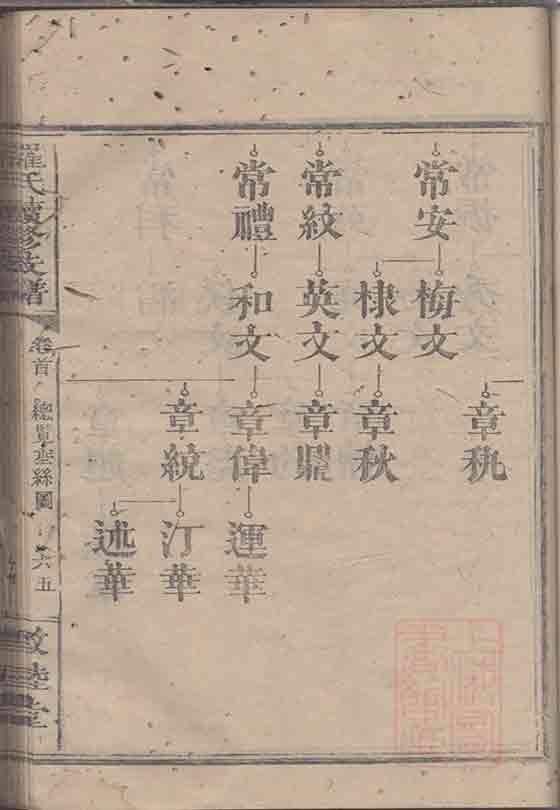 常安
常紋
常禮
梅文
棣文
英文
和文
章秋
章鼎
章偉
章統
運華
汀華
述華
羅氏續修支譜
卷首
總覽垂絲圖
六五
敦睦堂